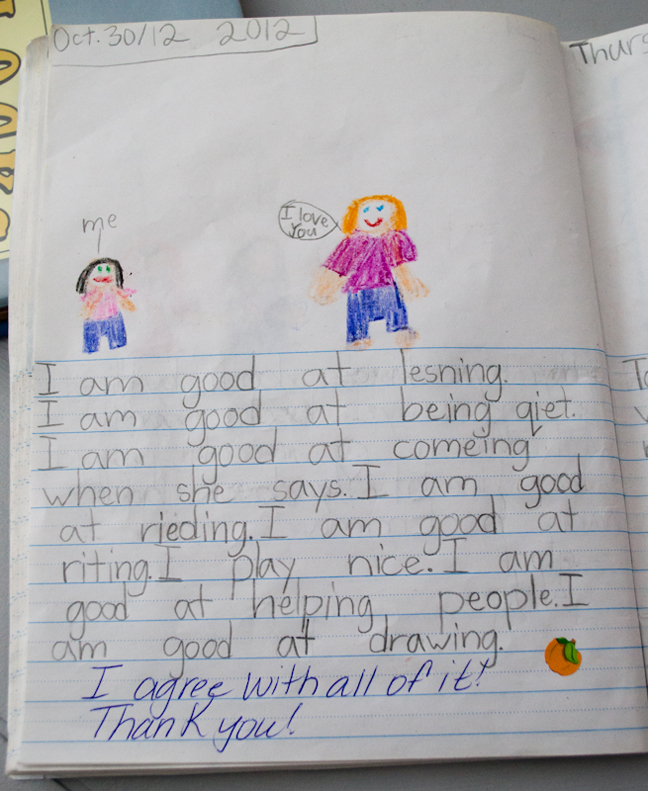 Oct. 30/12 2012
Thurs
me
I love
You
I am good at lesning.
I am good at being qiet.
I am good at comeing
when she says. I am good
at rieding. I am good at
riting. I play nice. I am
good at helping people. I
am good at drawing.
I agree with all of it!
Thank you!